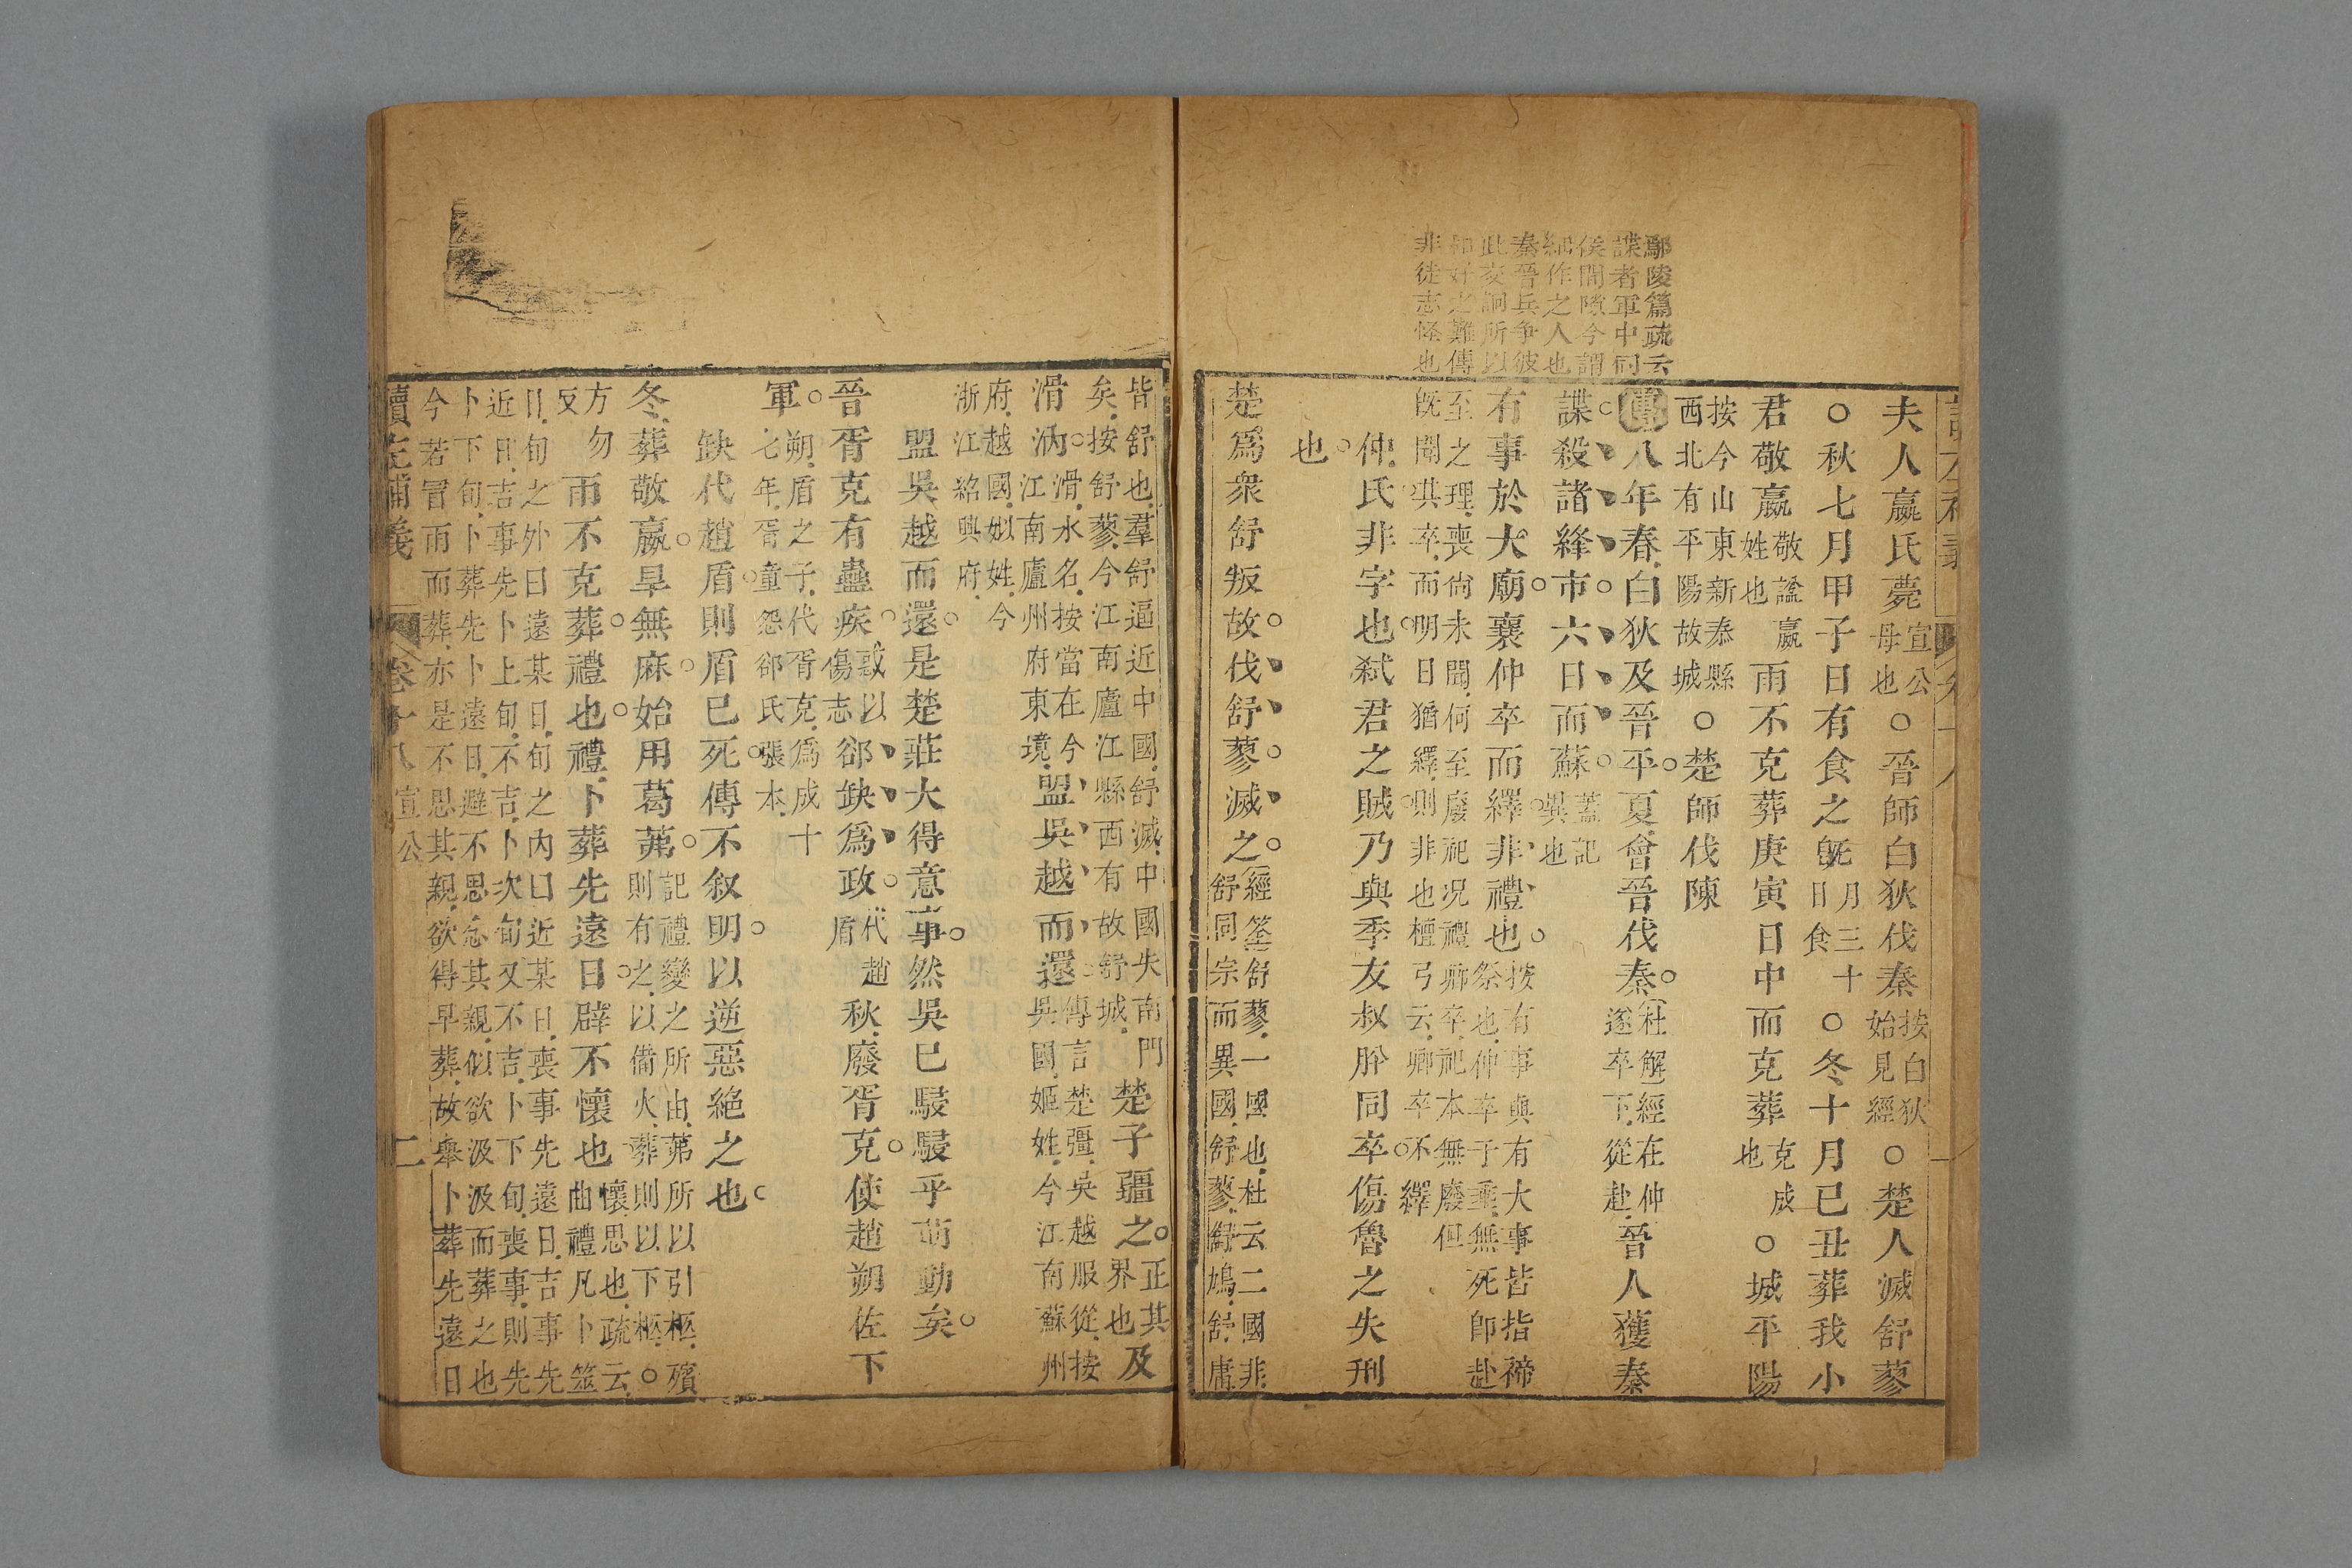 鄢陵篇疏云
諜者軍中伺
侯間隙今謂
細作之人也
秦晉兵爭彼
此交詗所以
和好之難傳
非徒志怪也
夫人嬴氏薨宣公母也○晉師白狄伐秦按白狄始見經○楚人滅舒蓼
○秋七月甲子日有食之旣月三十日食○冬十月己丑葬我小
君敬嬴敬諡嬴姓也雨不克葬庚寅日中而克葬克成也○城平陽
按今山東新泰縣西北有平陽故城○楚師伐陳
傳八年春白狄及晉平夏會晉伐秦杜解經在仲遂卒下從赴晉人獲秦
諜殺諸絳市六日而蘇蓋記異也
有事於大廟襄仲卒而繹非禮也按有事與有大事皆指禘祭也仲卒于垂無死師赴
至之理喪尚未聞何至廢祀况禮卿卒祀本無廢但旣聞其卒而明日猶繹則非也檀弓云卿卒不繹
仲氏非字也弑君之賊乃與季友叔肸同卒傷魯之失刑
也
楚爲衆舒叛故伐舒蓼滅之經筌舒蓼一國也杜云二國非舒同宗而異國舒蓼舒鳩舒庸
皆舒也羣舒逼近中國舒滅中國失南門矣按舒蓼今江南廬江縣西有故舒城楚子疆之正其界也及
滑汭滑水名按當在今江南廬州府東境盟吳越而還傳言楚彊吳越服從按吳國姬姓今江南蘇州
府越國姒姓今浙江紹興府
盟吳越而還是楚莊大得意事然吳已駸駸乎萌動矣
晉胥克有蠱疾惑以傷志郤缺爲政代趙盾秋廢胥克使趙朔佐下
軍朔盾之子代胥克爲成十七年胥童怨郤氏張本
缺代趙盾則盾已死傳不叙明以逆惡絶之也
冬葬敬嬴旱無麻始用葛茀記禮變之所由茀所以引柩殯則有之以備火葬則以下柩○
方勿反雨不克葬禮也禮卜葬先遠日辟不懷也懷思也疏云曲禮凡卜筮
日旬之外曰遠某日旬之內曰近某日喪事先遠日吉事先
近日吉事先卜上旬不吉卜次旬又不吉卜下旬喪事則先
卜下旬卜葬先卜遠日避不思念其親似欲汲汲而葬之也
今若冒雨而葬亦是不思其親欲得早葬故舉卜葬先遠日
讀左補義 卷十八 宣公 二